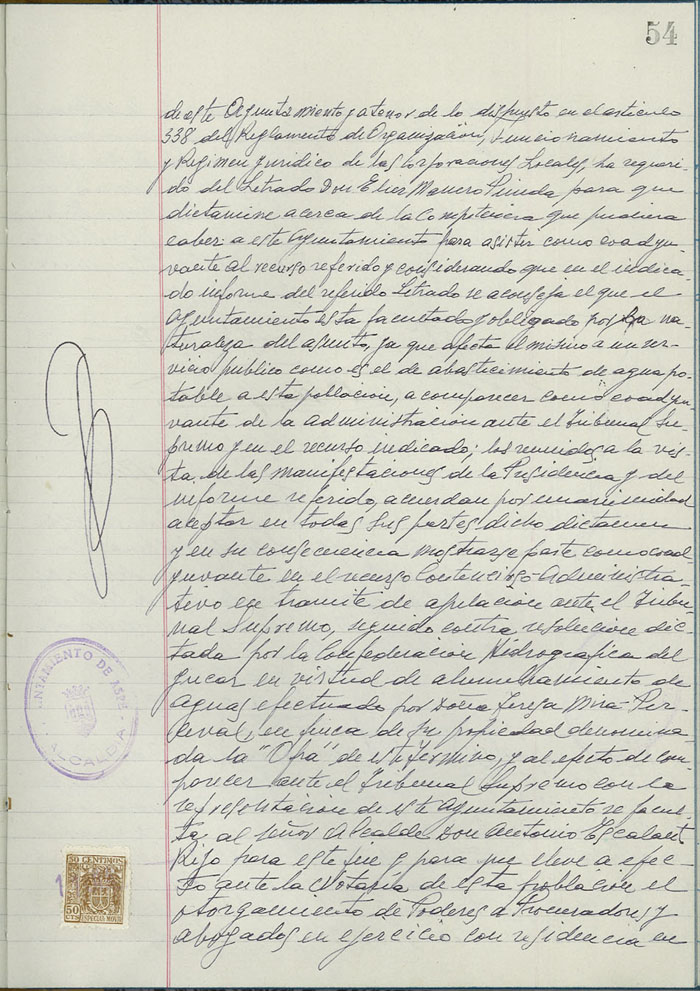 54
de este Ayuntamiento y a tenor de lo dispuesto en el artículo
338 del Reglamento de Organización, Funcionamiento
y Regimen Juridico de las Corporaciones Locales, ha requeri-
do del Letrado Don Elier Manero Pineda, para que
dictamine acerca de la Competencia que pudiera
caber a este Ayuntamiento para asistir como coadyu-
vante al recurso referido y considerando que en el indica-
do informe del referido Letrado se aconseja el que el
Ayuntamiento esta facultado y obligado por la na-
turaleza del asunto, ya que afecta el mismo a un ser-
vicio publico como es el de abastecimiento de agua po-
table a esta poblacion, a comparecer como coadyu-
vante de la administracion ante el Tribunal Su-
premo y en el recurso indicado; los reunidos a la vis-
ta de las manifestaciones de la Presidencia y del
informe referido, acuerdan por unanimidad
aceptar en todas sus partes dicho dictamen
y en su consecuencia mostrarse parte como coad-
yuvante en el recurso Contencioso-Administra-
tivo en tramite de apelacion ante el Tribu-
nal Supremo, seguido contra resolucion dic-
tada por la Confederacion Hidrografica del
Jucar en virtud de alumbramiento de
aguas efectuado por Doña Teresa Mira-Per-
ceval, en finca de su propiedad denomina-
da la "Ofra" de este termino, y al efecto de com-
parecer ante el Tribunal Supremo con la
representacion de este Ayuntamiento se facul-
ta al Señor Alcalde Don Antonio Escalant
Rizo para este fin y para que lleve a efec-
to ante la Notaría de esta poblacion el
otorgamiento de Poderes a Procuradores y
abogados en ejercicio con residencia en
AYUNTAMIENTO DE ASPE
ALCALDIA
50 CENTIMOS
50
CTS
ESPECIAL MOVIL